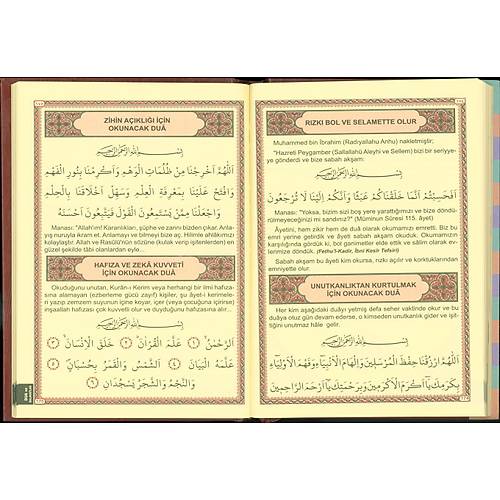 ZİHİN AÇIKLIĞI İÇİN
OKUNACAK DUÂ
اَللّٰهُمَّ اَخْرِجْنَا مِنْ ظُلُمَاتِ الْوَهْمِ وَاَكْرِمْنَا بِنُورِ الْفَهْمِ
وَافْتَحْ عَلَيْنَا بِمَعْرِفَةِ الْعِلْمِ وَسَهِّلْ اَخْلَاقَنَا بِالْحِلْمِ
وَاجْعَلْنَا مِمَّنْ يَسْتَمِعُونَ الْقَوْلَ فَيَتَّبِعُونَ اَحْسَنَهُ
Manası: "Allah'ım! Karanlıkları, şüphe ve zannı bizden çıkar. Anla-
yış nuruyla ikram et. Anlamayı ve bilmeyi bize aç. Hilimle ahlâkımızı
kolaylaştır. Allah ve Rasûlü'nün sözüne (kulak verip işitenlerden) en
güzel şekilde tâbi olanlardan eyle...
HAFIZA VE ZEKÂ KUVVETİ
İÇİN OKUNACAK DUÂ
Okuduğunu unutan, Kurân-ı Kerim veya herhangi bir ilmi hafıza-
sına alamayan (ezberleme gücü zayıf) kişiler, şu âyet-i kerimele-
ri yazıp zemzem suyunun içine koyar, içer (veya çocuğuna içirse)
inşaallah hafızası çok kuvvetli olur ve duyduğunu hafızasına alır...
بِسْمِ اللهِ الرَّحْمٰنِ الرَّحِيمِ
اَلرَّحْمٰنُ ﴿١﴾ عَلَّمَ الْقُرْاٰنَ ﴿٢﴾ خَلَقَ الْاِنْسَانَ ﴿٣﴾
عَلَّمَهُ الْبَيَانَ ﴿٤﴾ اَلشَّمْسُ وَالْقَمَرُ بِحُسْبَانٍ ﴿٥﴾
وَالنَّجْمُ وَالشَّجَرُ يَسْجُدَانِ ﴿٦﴾
RIZKI BOL VE SELAMETTE OLUR
Muhammed bin İbrahim (Radiyallahu Anhu) nakletmiştir;
"Hazreti Peygamber (Sallallahü Aleyhi ve Sellem) bizi bir seriyye-
ye gönderdi ve bize sabah akşam:
بِسْمِ اللهِ الرَّحْمٰنِ الرَّحِيمِ
اَفَحَسِبْتُمْ اَنَّمَا خَلَقْنَاكُمْ عَبَثًا وَاَنَّكُمْ اِلَيْنَا لَا تُرْجَعُونَ
Manası: "Yoksa, bizim sizi boş yere yarattığımızı ve bize döndü-
rülmeyeceğinizi mi sandınız?" (Mü'minun Sûresi 115. âyet)
Âyetini, hem zikir hem de duâ olarak okumamızı emretti. Biz bu
emri yerine getirdik ve âyeti sabah akşam okuduk. Okumamızın
karşılığında gördük ki, bol ganimetler elde ettik ve sâlim olarak ev-
lerimize döndük. (Fethu'l-Kadir, İbni Kesir Tefsiri)
Sabah akşam bu âyeti kim okursa, rızıkları açılır ve korktuklarından
emniyette olur.
UNUTKANLIKTAN KURTULMAK
İÇİN OKUNACAK DUÂ
Her kim aşağıdaki duâyı yetmiş defa seher vaktinde okur ve bu
duâya otuz gün devam ederse, o kimseden unutkanlık gider ve işit-
tiğini unutmaz hâle gelir.
بِسْمِ اللهِ الرَّحْمٰنِ الرَّحِيمِ
اَللّٰهُمَّ ارْزُقْنَا حِفْظَ الْمُرْسَلِينَ وَاِلْهَامَ الْاَنْبِيَاءِ وَفَهْمَ الْاَوْلِيَاءِ
بِكَرَمِكَ يَا اَكْرَمَ الْاَكْرَمِينَ وَبِرَحْمَتِكَ يَا اَرْحَمَ الرَّاحِمِينَ